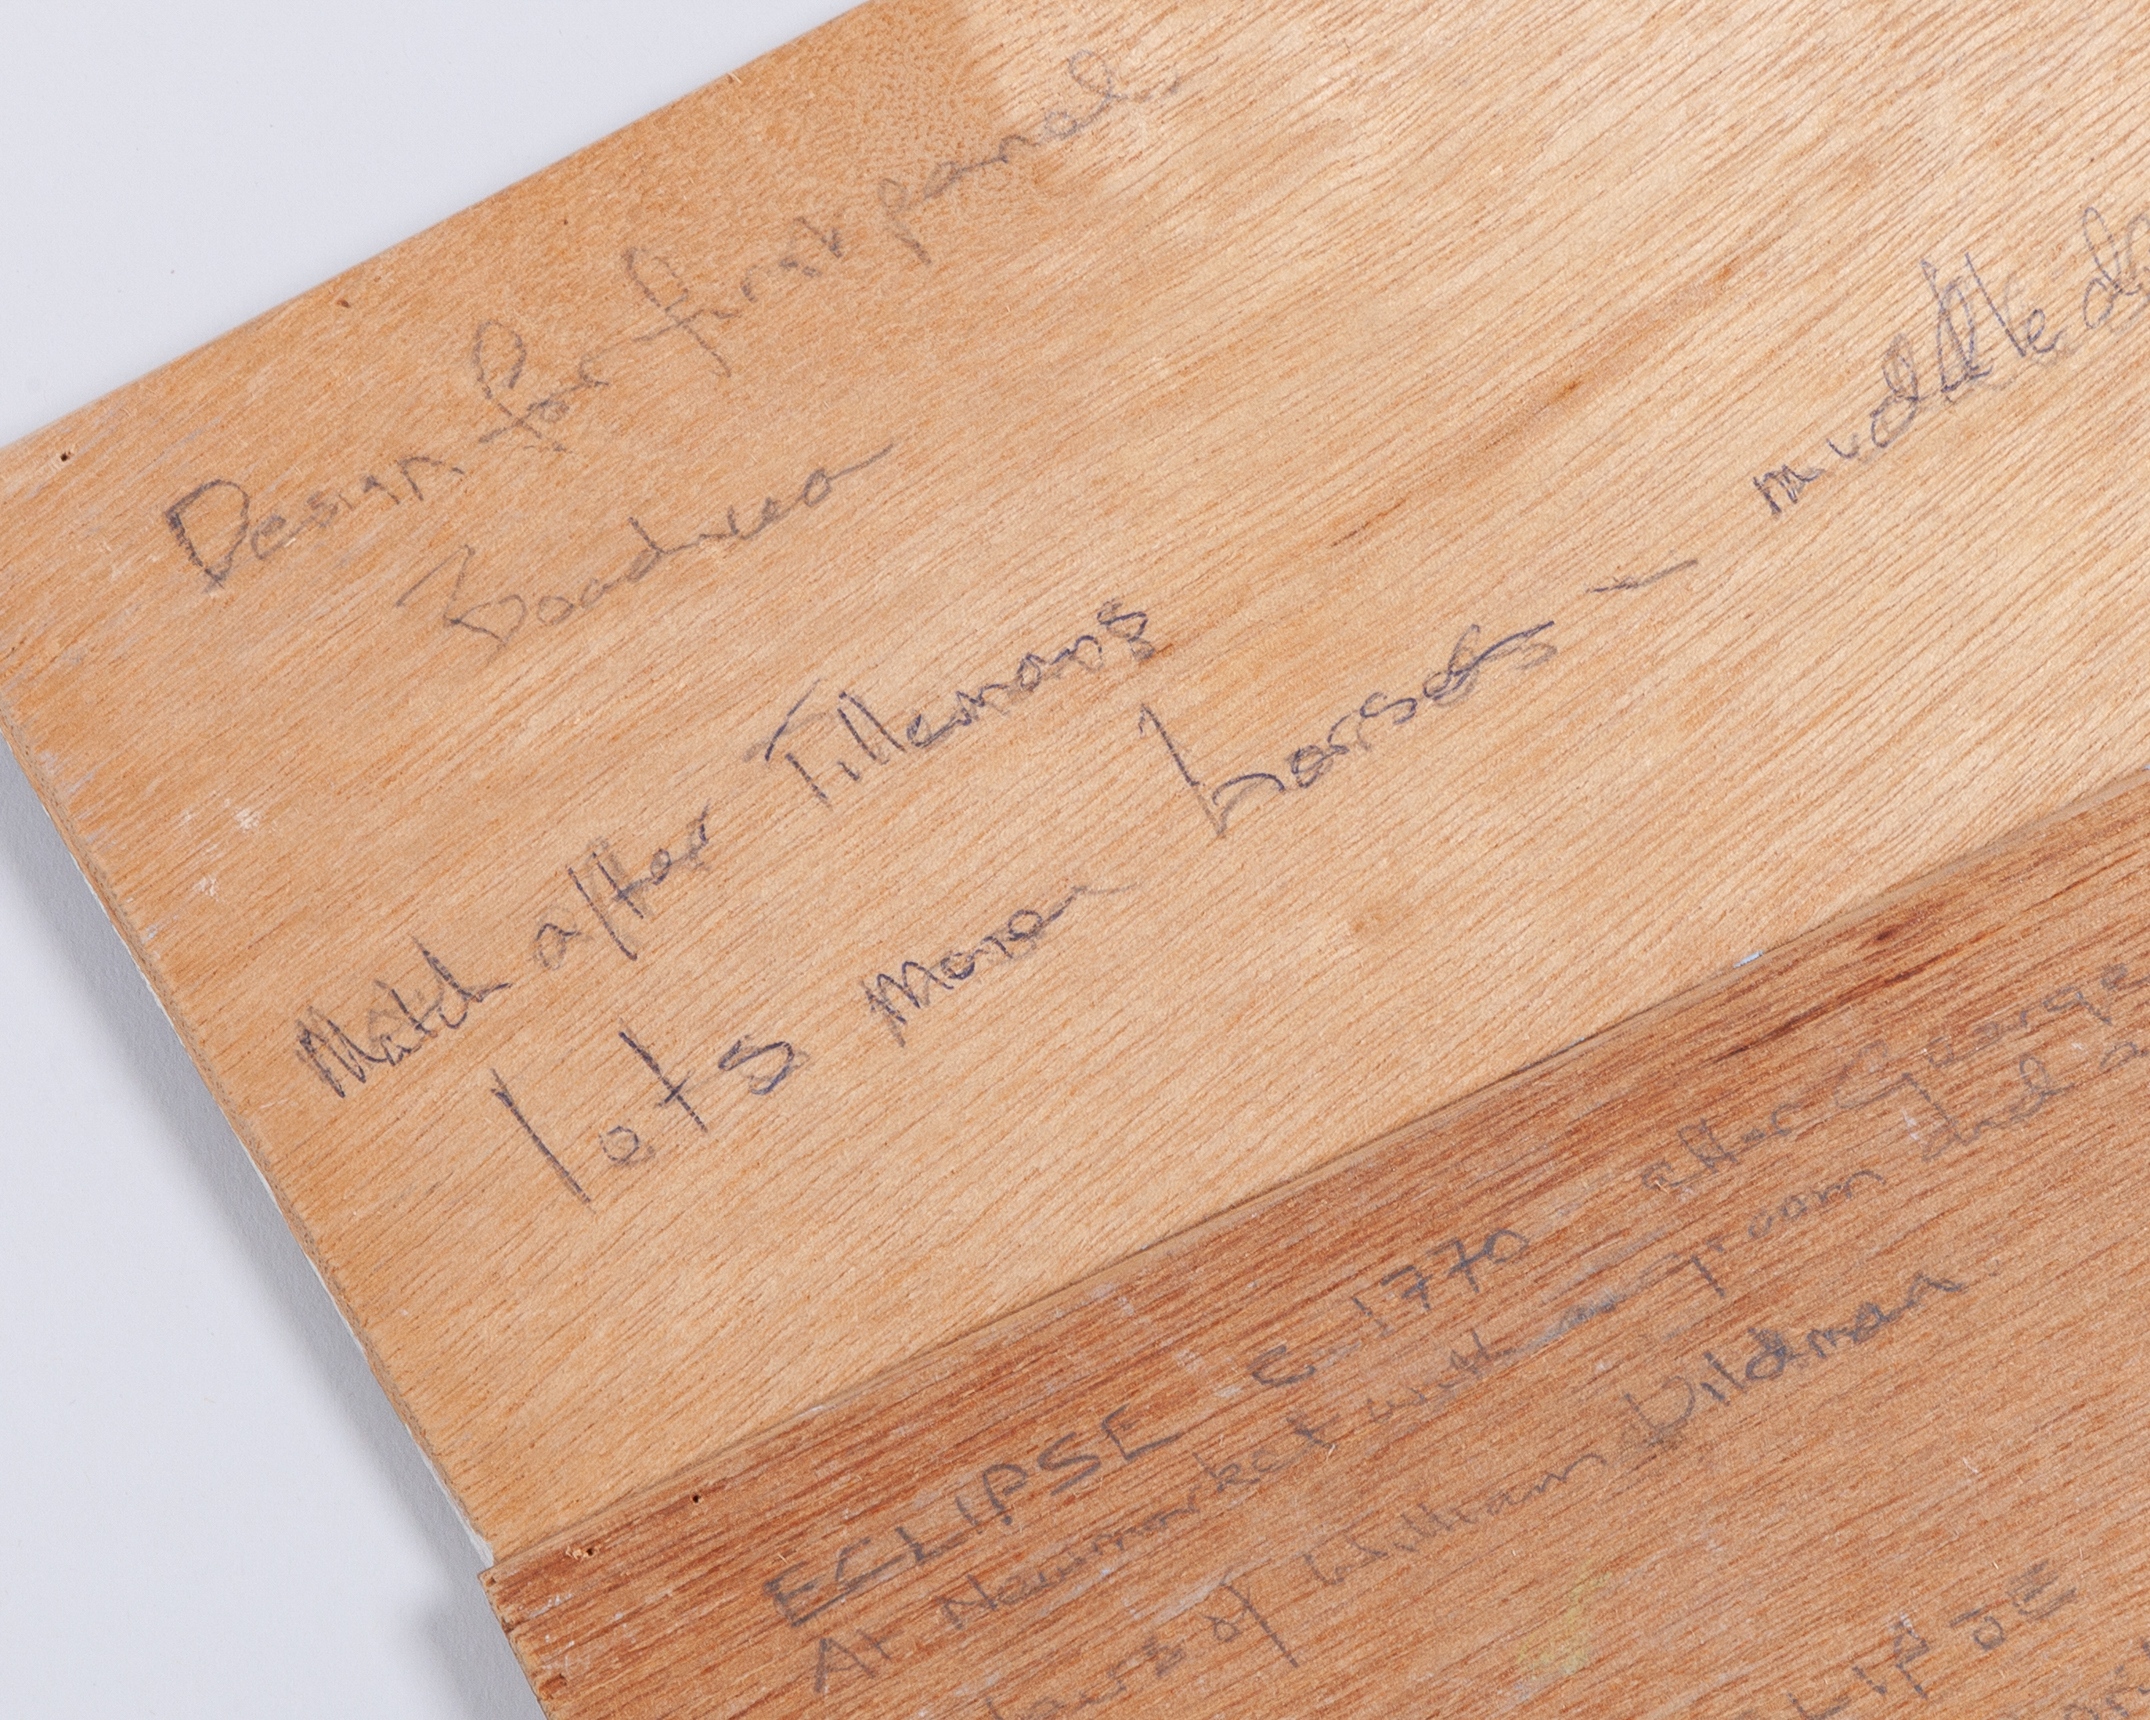 Design for first panel
Boadicea
Match after Tillemans
lots moner horses — muddle
ECLIPSE C 1770 after George
At Newmarket with a Groom and
of William Wildman